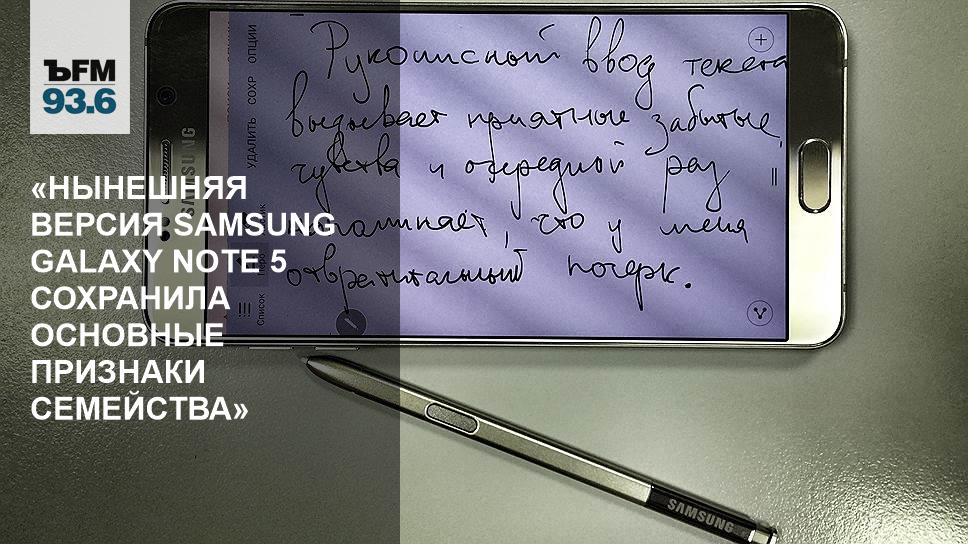 ЪFM
93.6
«НЫНЕШНЯЯ
ВЕРСИЯ SAMSUNG
GALAXY NOTE 5
СОХРАНИЛА
ОСНОВНЫЕ
ПРИЗНАКИ
СЕМЕЙСТВА»
SAMSUNG
ОПЦИИ
СОХР
УДАЛИТЬ
Список
Рукописный ввод текста
вызывает приятные забытые
чувства и очередной раз
напоминает, что у меня
отвратительный почерк.
SAMSUNG